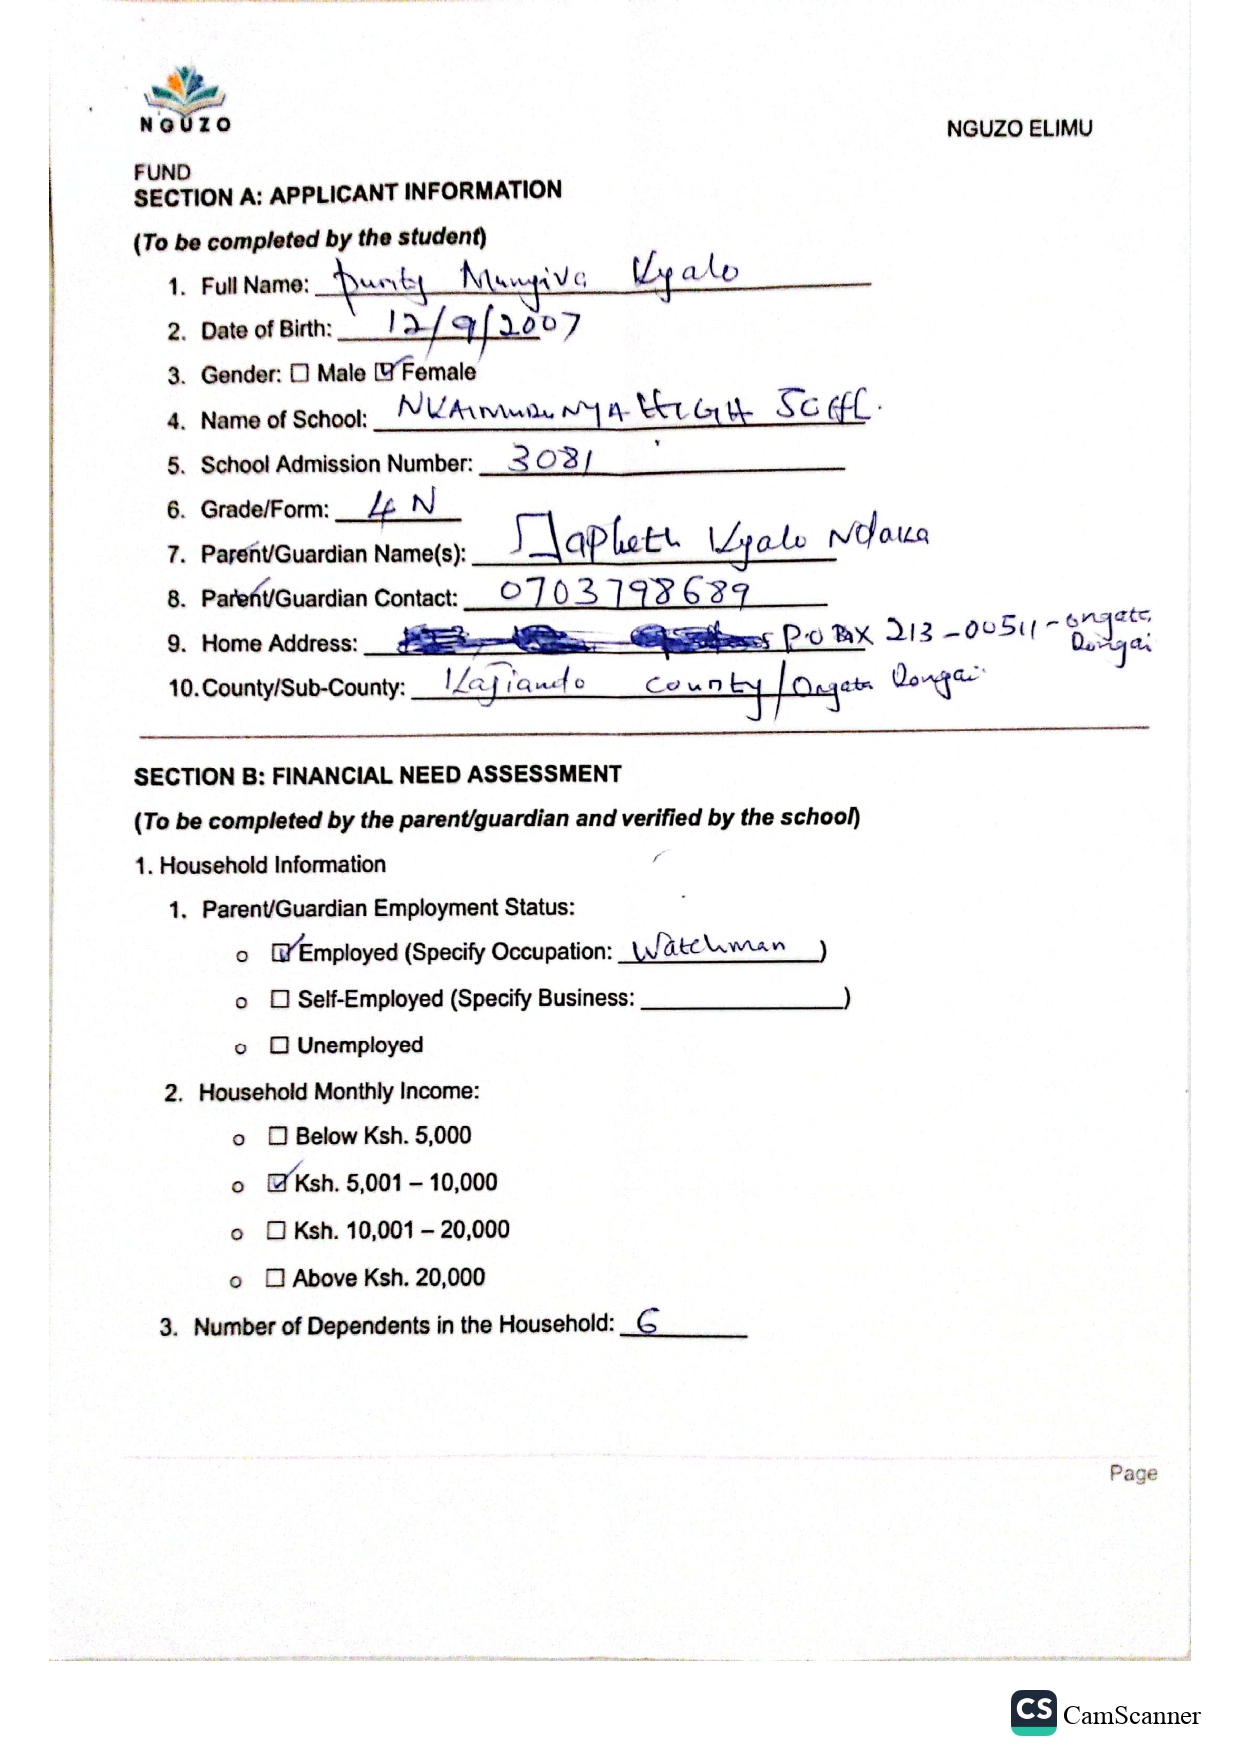 NGUZO
NGUZO ELIMU
FUND
SECTION A: APPLICANT INFORMATION
(To be completed by the student)
1. Full Name: Purity Munyiva Kyalo
2. Date of Birth: 12/9/2007
3. Gender: ☐ Male ☑ Female
4. Name of School: HIGH SCHL.
5. School Admission Number: 3081
6. Grade/Form: 4 N
7. Parent/Guardian Name(s): Japheth Kyalo Ndaka
8. Parent/Guardian Contact: 0703798689
9. Home Address: P.O BOX 213-00511-ongata Rongai
10. County/Sub-County: Kajiando county/Ongata Rongai
SECTION B: FINANCIAL NEED ASSESSMENT
(To be completed by the parent/guardian and verified by the school)
1. Household Information
1. Parent/Guardian Employment Status:
o ☑ Employed (Specify Occupation: Watchman)
o ☐ Self-Employed (Specify Business: ____)
o ☐ Unemployed
2. Household Monthly Income:
o ☐ Below Ksh. 5,000
o ☑ Ksh. 5,001 – 10,000
o ☐ Ksh. 10,001 – 20,000
o ☐ Above Ksh. 20,000
3. Number of Dependents in the Household: 6
Page
CS CamScanner